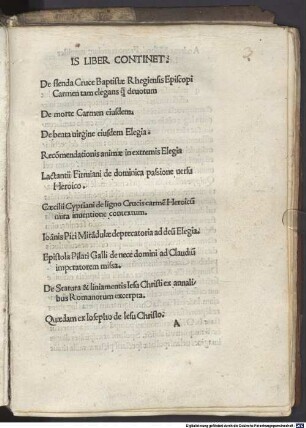 IS LIBER CONTINET:
De flenda Cruce Baptistæ Rhegiensis Episcopi
Carmen tam elegans q̃ deuotum
De morte Carmen eiusdem.
De beata uirgine eiusdem Elegia.
Recõmendationis animæ in extremis Elegia
Lactantii Firmiani de dominica passione uersu
Heroico.
Cæcilii Cypriani de ligno Crucis carmẽ Heroicũ
mira inuentione contextum.
Ioãnis Pici Mirãdulæ deprecatoria ad deũ Elegia.
Epistola Pilati Galli de nece domini ad Claudiũ
imperatorem missa.
De Statura & liniamentis Iesu Christi ex annali
bus Romanorum excerpta.
Quædam ex Iosepho de Iesu Christo.
A